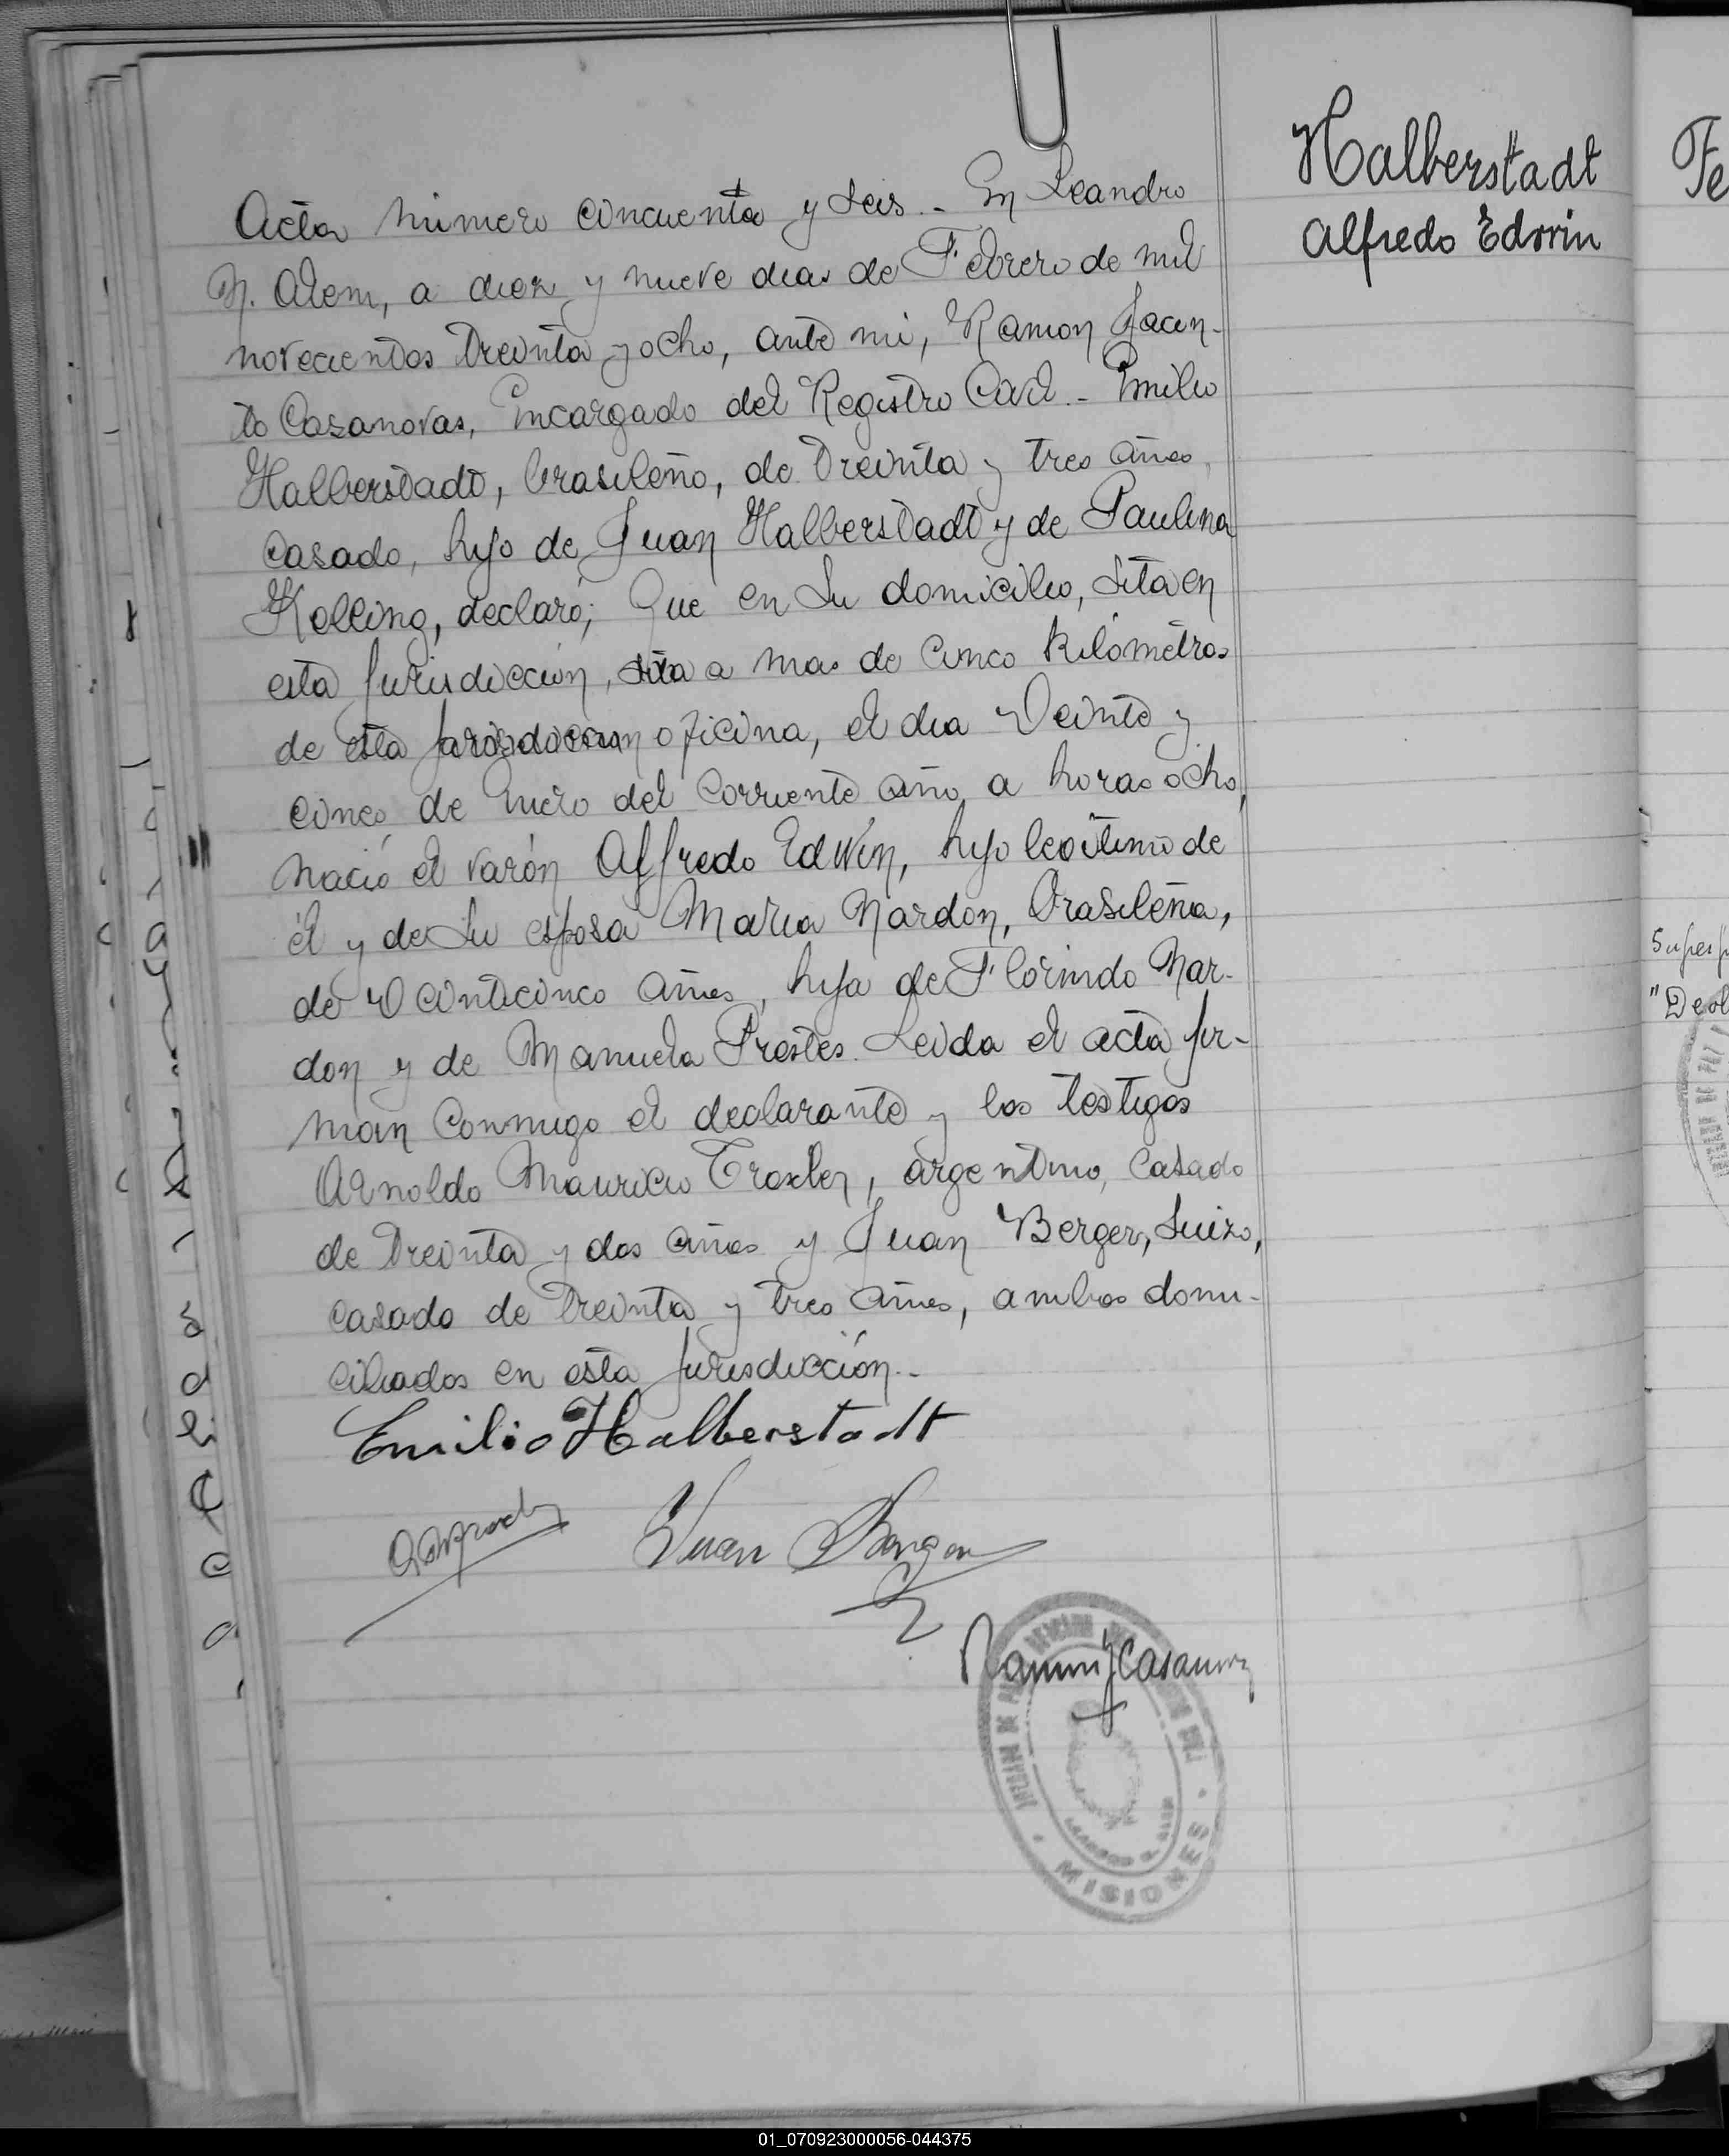 Halberstadt
Alfredo Edwin
Acta número cincuenta y seis.- En Leandro
N. Alem, a diez y nueve dias de Febrero de mil
novecientos treinta y ocho, ante mi, Ramon Jacin-
to Casanovas, Encargado del Registro Civil.- Emilio
Halberstadt, brasileño, de treinta y tres años,
casado, hijo de Juan Halberstadt y de Paulina
Kolling, declaró; Que en su domicilio, sita en
esta jurisdicción, sita a mas de cinco kilómetros
de esta jurisdiccion oficina, el dia veinte y
cinco de Enero del corriente año, a horas ocho,
nació el varón Alfredo Edwin, hijo legitimo de
él y de su esposa Maria Nardon, brasileña,
de veinticinco años, hija de Florindo Nar-
don y de Manuela Prestes. Leida el acta fir-
man conmigo el declarante y los testigos
Arnoldo Mauricio Troxler, argentino, casado
de treinta y dos años y Juan Berger, suizo,
casado de treinta y tres años, ambos domi-
ciliados en esta jurisdicción.-
Emilio Halberstadt
Juan Berger
Ramon J Casanovas
MISIONES
01_070923000056-044375